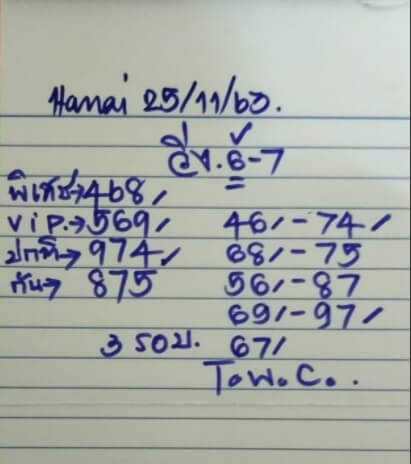 Hanai 25/11/63.
วิ่ง.6-7
พิเศษ→468/
Vip.→569/ 46/-74/
ปกติ→974/ 68/-75
กัน→875 56/-87
69/-97/
3 รอบ. 67/
T.W.C..